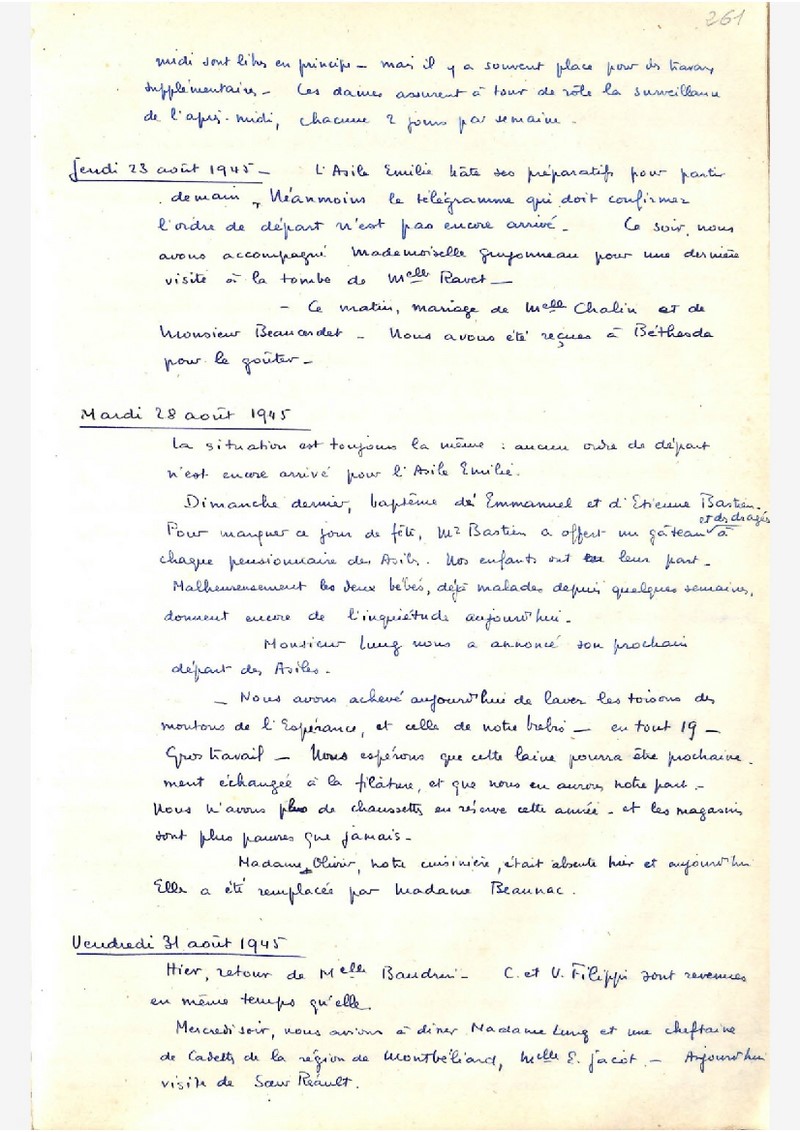 261
midi sont libres en principe - mais il y a souvent place pour des travaux
supplémentaires - Ces dames assurent à tour de rôle la surveillance
de l'après-midi, chacune 2 jours par semaine.
Jeudi 23 août 1945 - L'Asile Emilie hâte ses préparatifs pour partir
demain, Néanmoins le télégramme qui doit confirmer
l'ordre de départ n'est pas encore arrivé - Ce soir, nous
avons accompagné Mademoiselle Guyonneau pour une dernière
visite à la tombe de Melle Ravet -
- Ce matin, mariage de Melle Chalin et de
Monsieur Beaucardet - Nous avons été reçues à Béthesda
pour le goûter -
Mardi 28 août 1945
La situation est toujours la même : aucun ordre de départ
n'est encore arrivé pour l'Asile Emilie.
Dimanche dernier, baptême d'Emmanuel et d'Etienne Bastien.
Pour marquer ce jour de fête, Mr Bastien a offert un gâteau et des dragées à
chaque pensionnaire des Asiles. Nos enfants ont eu leur part -
Malheureusement les deux bébés, déjà malades depuis quelques semaines,
donnent encore de l'inquiétude aujourd'hui -
Monsieur Lung nous a annoncé son prochain
départ des Asiles -
- Nous avons achevé aujourd'hui de laver les toisons des
moutons de l'Espérance, et celle de notre brebis - en tout 19 -
Gros travail - Nous espérons que cette laine pourra être prochaine-
ment échangée à la filature, et que nous en aurons notre part -
Nous n'avons plus de chaussettes en réserve cette année - et les magasins
sont plus pauvres que jamais -
Madame Olivier, notre cuisinière, était absente hier et aujourd'hui
Elle a été remplacée par Madame Beaunac.
Vendredi 31 août 1945
Hier, retour de Melle Baudrin - C. et V. Filippi sont revenues
en même temps qu'elle.
Mercredi soir, nous avions à dîner Madame Lung et une cheftaine
de Cadettes de la région de Montbéliard, Melle E. Jacot. - Aujourd'hui
visite de Sœur Réault.